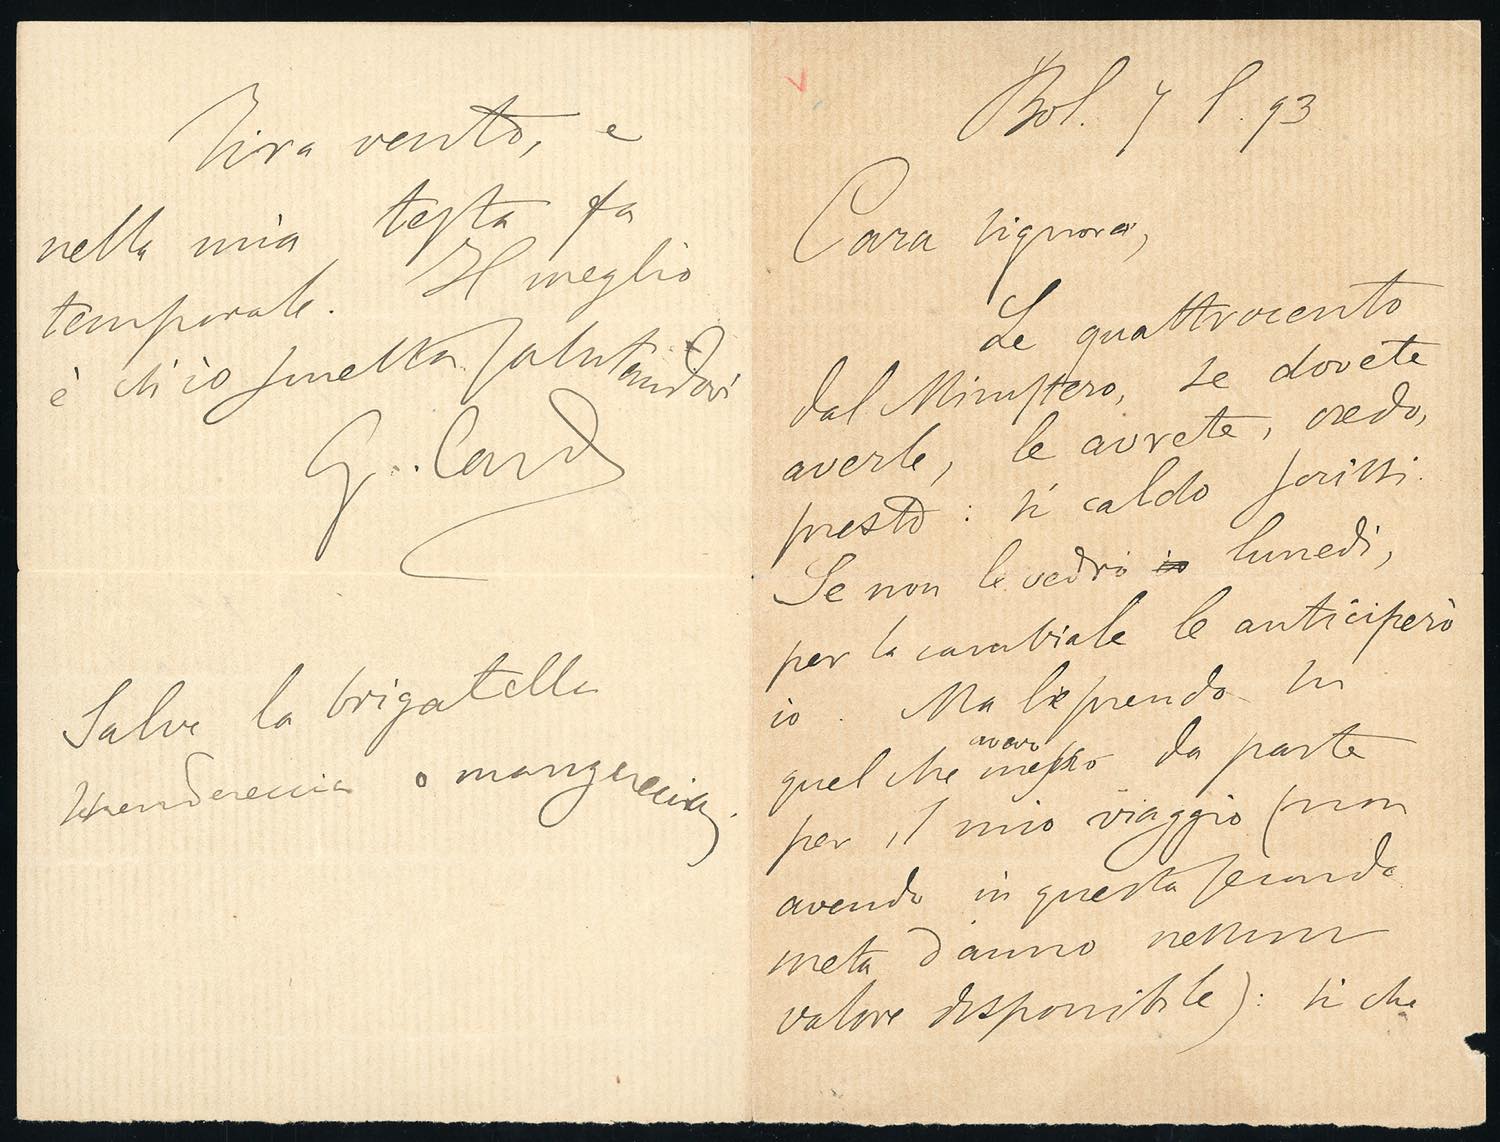 Bol. 7 l. 93
Cara signora,
Le quattrocento
dal Ministero, se dovete
averle, le avrete, credo,
presto: sì caldo scrissi.
Se non le vedrò io lunedì,
per la cambiale le anticiperò
io. Ma le prendo su
quel che avevo messo da parte
per il mio viaggio (non
avendo in questa seconda
metà d'anno nessun
valore disponibile): sì che
Tira vento, e
nella mia testa fa
temporale. Il meglio
è ch'io smetta salutandovi
G. Card
Salve la brigatella
o mangereccia.